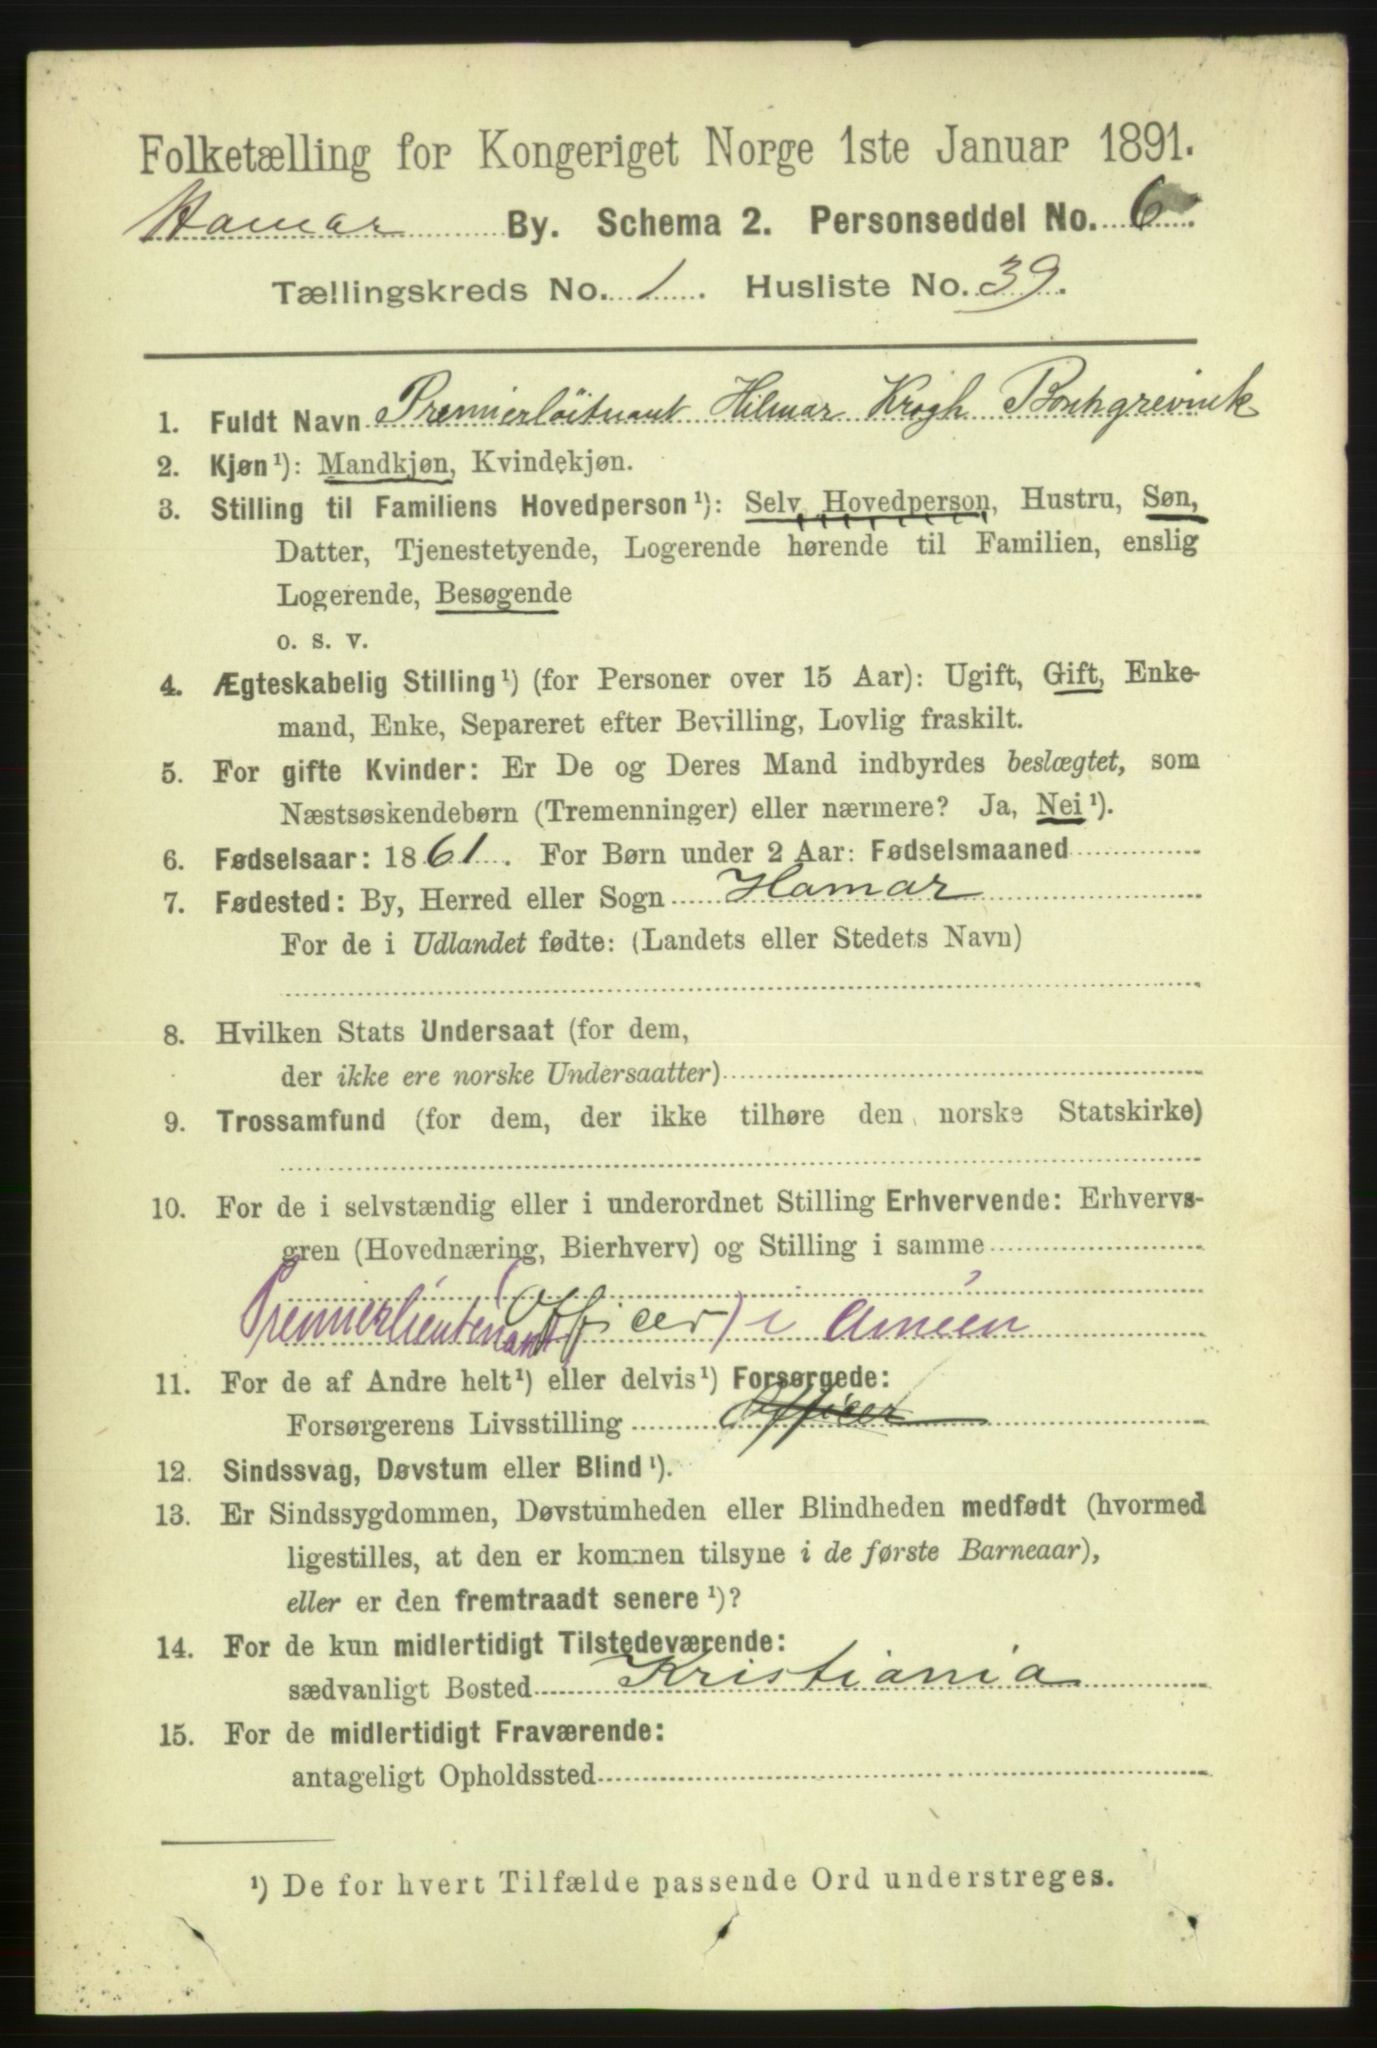 Folketælling for Kongeriget Norge 1ste Januar 1891.
Hamar By. Schema 2. Personseddel No. 6.
Tællingskreds No. 1. Husliste No. 39.
1. Fuldt Navn Premierløitnant Hilmar Krogh Borchgrevink
2. Kjøn ¹): Mandkjøn, Kvindekjøn.
3. Stilling til Familiens Hovedperson ¹): Selv Hovedperson, Hustru, Søn,
Datter, Tjenestetyende, Logerende hørende til Familien, enslig
Logerende, Besøgende
o. s. v.
4. Ægteskabelig Stilling ¹) (for Personer over 15 Aar): Ugift, Gift, Enke-
mand, Enke, Separeret efter Bevilling, Lovlig fraskilt.
5. For gifte Kvinder: Er De og Deres Mand indbyrdes beslægtet, som
Næstsøskendebørn (Tremenninger) eller nærmere? Ja, Nei ¹).
6. Fødselsaar: 1861. For Børn under 2 Aar: Fødselsmaaned
7. Fødested: By, Herred eller Sogn Hamar
For de i Udlandet fødte: (Landets eller Stedets Navn)
8. Hvilken Stats Undersaat (for dem,
der ikke ere norske Undersaatter)
9. Trossamfund (for dem, der ikke tilhøre den norske Statskirke)
10. For de i selvstændig eller i underordnet Stilling Erhvervende: Erhvervs-
gren (Hovednæring, Bierhverv) og Stilling i samme
Premierlieutenant (Officer) i Arméen
11. For de af Andre helt ¹) eller delvis ¹) Forsørgede:
Forsørgerens Livsstilling Officer
12. Sindssvag, Døvstum eller Blind ¹).
13. Er Sindssygdommen, Døvstumheden eller Blindheden medfødt (hvormed
ligestilles, at den er kommen tilsyne i de første Barneaar),
eller er den fremtraadt senere ¹)?
14. For de kun midlertidigt Tilstedeværende:
sædvanligt Bosted Kristiania
15. For de midlertidigt Fraværende:
antageligt Opholdssted
¹) De for hvert Tilfælde passende Ord understreges.